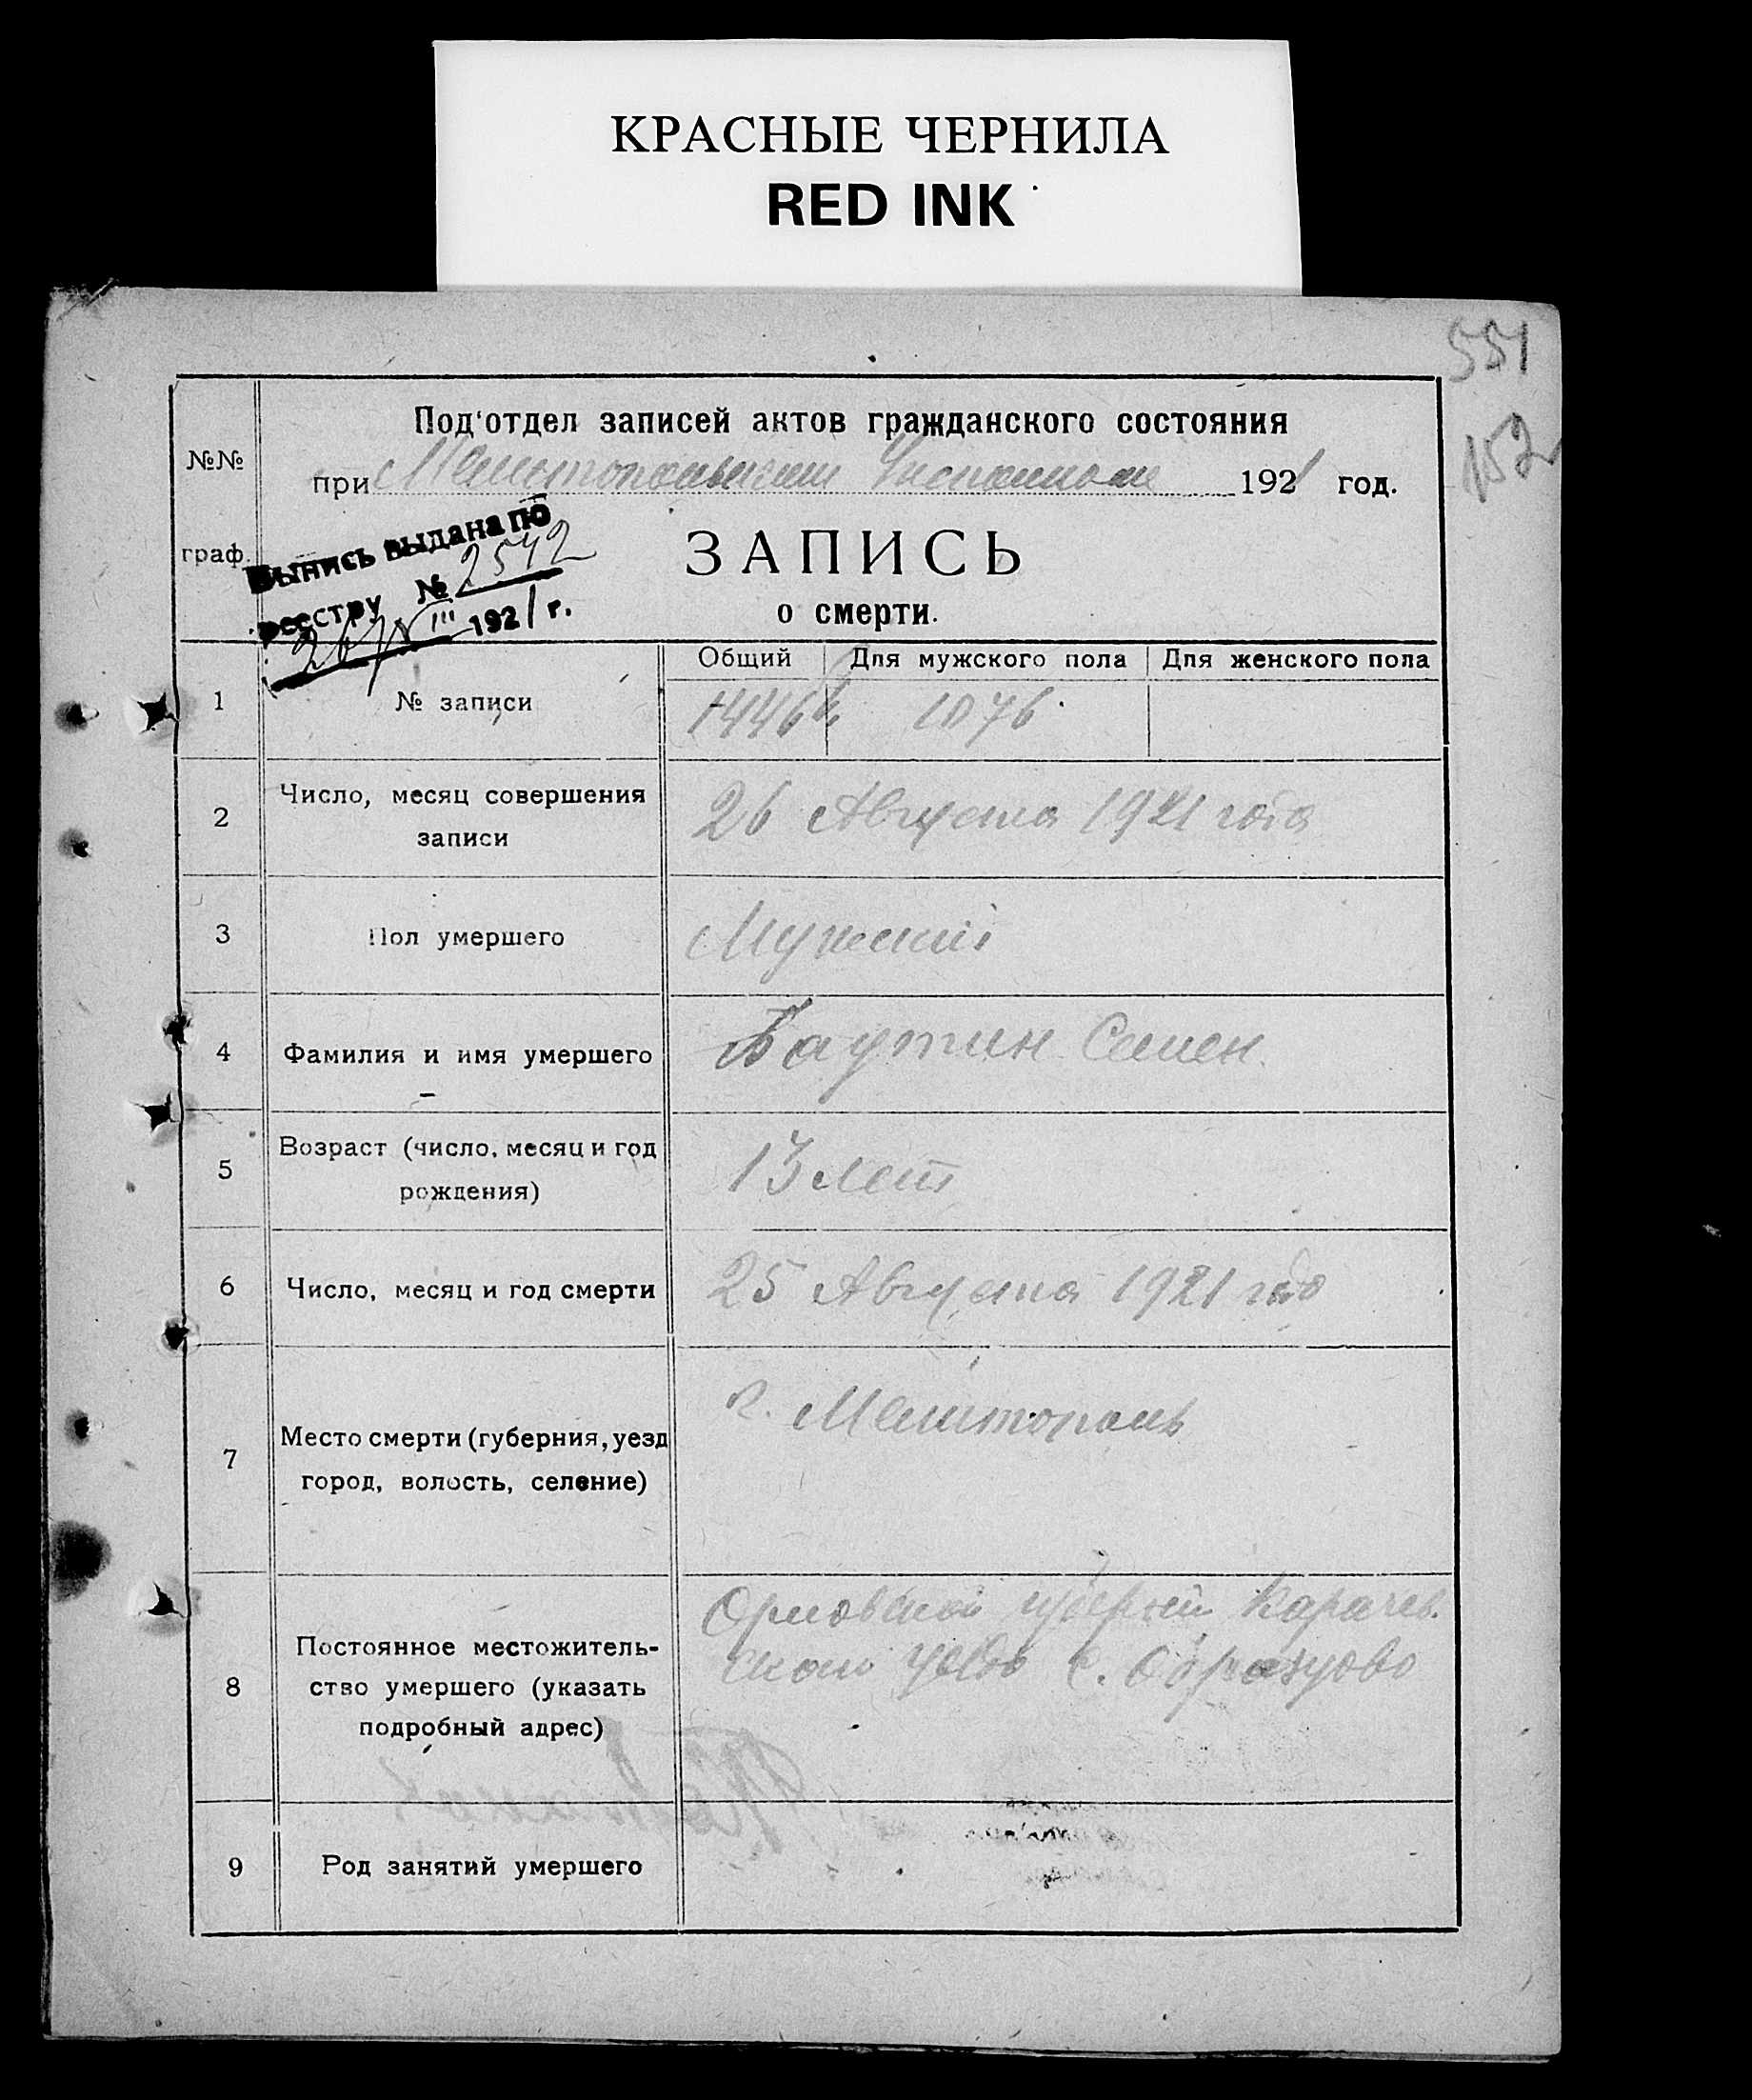 КРАСНЫЕ ЧЕРНИЛА
RED INK
551
152
№№
граф.
Под'отдел записей актов гражданского состояния
при Мелитопольском Исполкоме 1921 год.
Выпись выдана по
реестру № 2542
26/VIII 1921 г.
ЗАПИСЬ
о смерти.
Общий Для мужского пола Для женского пола
1 № записи 1076
2 Число, месяц совершения
записи
26 Августа 1921 года
3 Пол умершего Мужской
4 Фамилия и имя умершего Баутин Семен
5 Возраст (число, месяц и год
рождения)
13 лет
6 Число, месяц и год смерти 25 Августа 1921 года
7 Место смерти (губерния, уезд
город, волость, селение)
г. Мелитополь
8 Постоянное местожитель-
ство умершего (указать
подробный адрес)
Орловской губернии Карачев.
ского уезда с. Образцово
9 Род занятий умершего